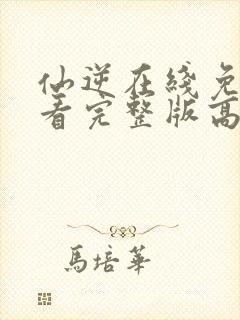 仙逆在线免
看完整版高
馬培華